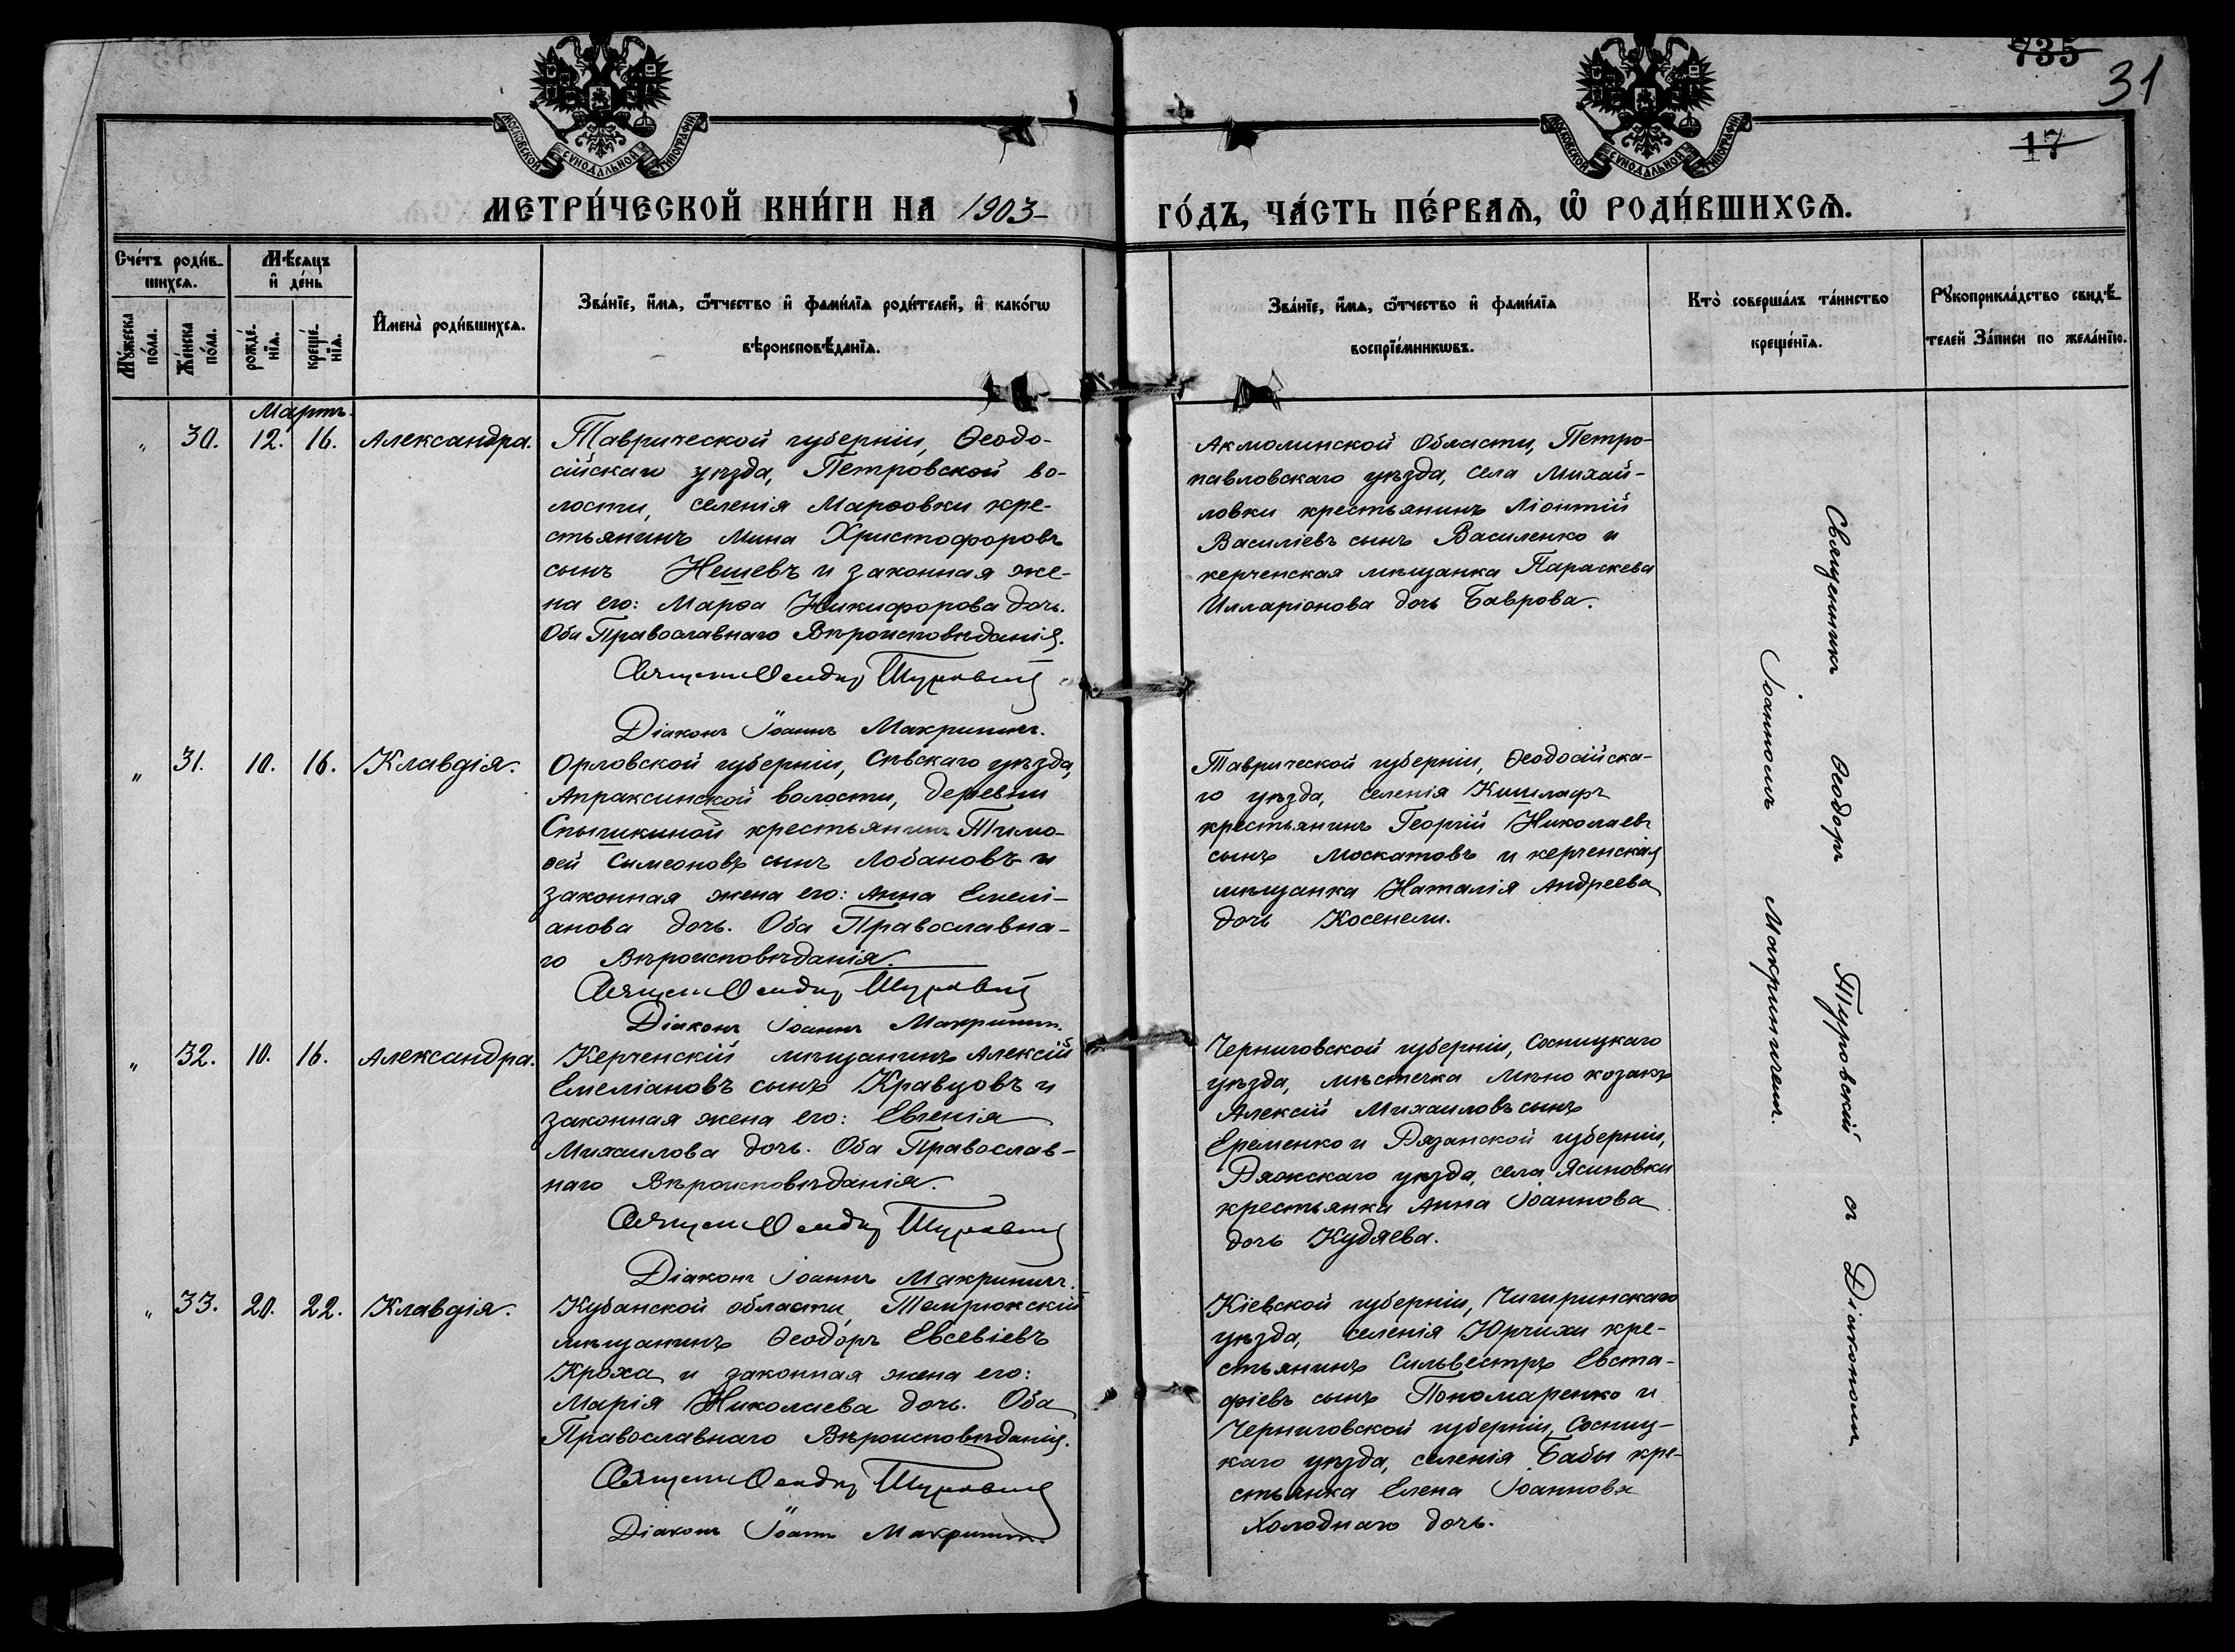 735
31
17
МОСКОВСКОЙ СѴНОДАЛЬНОЙ ТИПОГРАФІИ
МОСКОВСКОЙ СѴНОДАЛЬНОЙ ТИПОГРАФІИ
МЕТРИ́ЧЕСКОЙ КНИ́ГИ НА 1903
ГО́ДЪ, ЧА́СТЬ ПЕ́РВАѦ, Ѽ РОДИ́ВШИХСѦ.
Сче́тъ роди́в-
шихсѧ.
Мѣ́сѧцъ
и҆ де́нь
Мꙋ́жеска
по́ла.
Же́нска
по́ла.
рожде́-
нїѧ.
креще́-
нїѧ.
И҆мена̀ роди́вшихсѧ.
Зва́нїе, и҆́мѧ, ѻ҆́тчество и҆ фами́лїѧ роди́телей, и҆ како́гѡ
вѣроисповѣ́данїѧ.
Зва́нїе, и҆́мѧ, ѻ҆́тчество и҆ фами́лїѧ
воспрїе́мникѡвъ.
Кто̀ соверша́лъ та́инство
креще́нїѧ.
Рꙋкоприкла́дство свидѣ́-
телей За́писи по жела́нїю.
Мартъ.
" 30. 12. 16. Александра.
Таврической губерніи, Ѳеодо-
сійскаго уѣзда, Петровской во-
лости, селенія Марѳовки кре-
стьянинъ Мина Христофоровъ
сынъ Нешевъ и законная же-
на его: Марѳа Никифорова дочь.
Оба Православнаго Вѣроисповѣданія.
Священ Ѳеодор Туровскій
Діаконъ Іоаннъ Макринич.
Акмолинской Области, Петро-
павловскаго уѣзда, села Михай-
ловки крестьянинъ Ліонтій
Василіевъ сынъ Василенко и
керченская мѣщанка Параскева
Илларіонова дочь Баврова.
" 31. 10. 16. Клавдія.
Орловской губерніи, Сѣвскаго уѣзда,
Апраксинской волости, деревни
Спышкиной крестьянинъ Тимо-
ѳей Симеоновъ сынъ Лобановъ и
законная жена его: Анна Емелі-
анова дочь. Оба Православна-
го Вѣроисповѣданія.
Священ Ѳеодор Туровскій
Діаконъ Іоаннъ Макринич.
Таврической губерніи, Ѳеодосійска-
го уѣзда, селенія Кишлафъ
крестьянинъ Георгій Николаевъ
сынъ Москатовъ и керченская
мѣщанка Наталія Андреева
дочь Косенели.
" 32. 10. 16. Александра.
Керченскій мѣщанинъ Алексій
Емеліановъ сынъ Кравцовъ и
законная жена его: Евгенія
Михаилова дочь. Оба Православ-
наго Вѣроисповѣданія.
Священ Ѳеодор Туровскій
Діаконъ Іоаннъ Макринич.
Черниговской губерніи, Сосницкаго
уѣзда, мѣстечка Мѣно козакъ
Алексій Михаиловъ сынъ
Еременко и Рязанской губерніи,
Ряжскаго уѣзда, села Ясиновки
крестьянка Анна Іоаннова
дочь Кудяева.
" 33. 20. 22. Клавдія.
Кубанской области, Темрюкскій
мѣщанинъ Ѳеодоръ Евсевіевъ
Кроха и законная жена его:
Марія Николаева дочь. Оба
Православнаго Вѣроисповѣданія.
Священ Ѳеодор Туровскій
Діаконъ Іоаннъ Макринич.
Кіевской губерніи, Чигиринскаго
уѣзда, селенія Юрчихи кре-
стьянинъ Сильвестръ Евста-
фіевъ сынъ Пономаренко и
Черниговской губерніи, Сосниц-
каго уѣзда, селенія Бабы кре-
стьянка Елена Іоаннова
Холоднаго дочь.
Священникъ Ѳеодоръ Туровскій съ Діакономъ
Іоанномъ Макриничемъ.